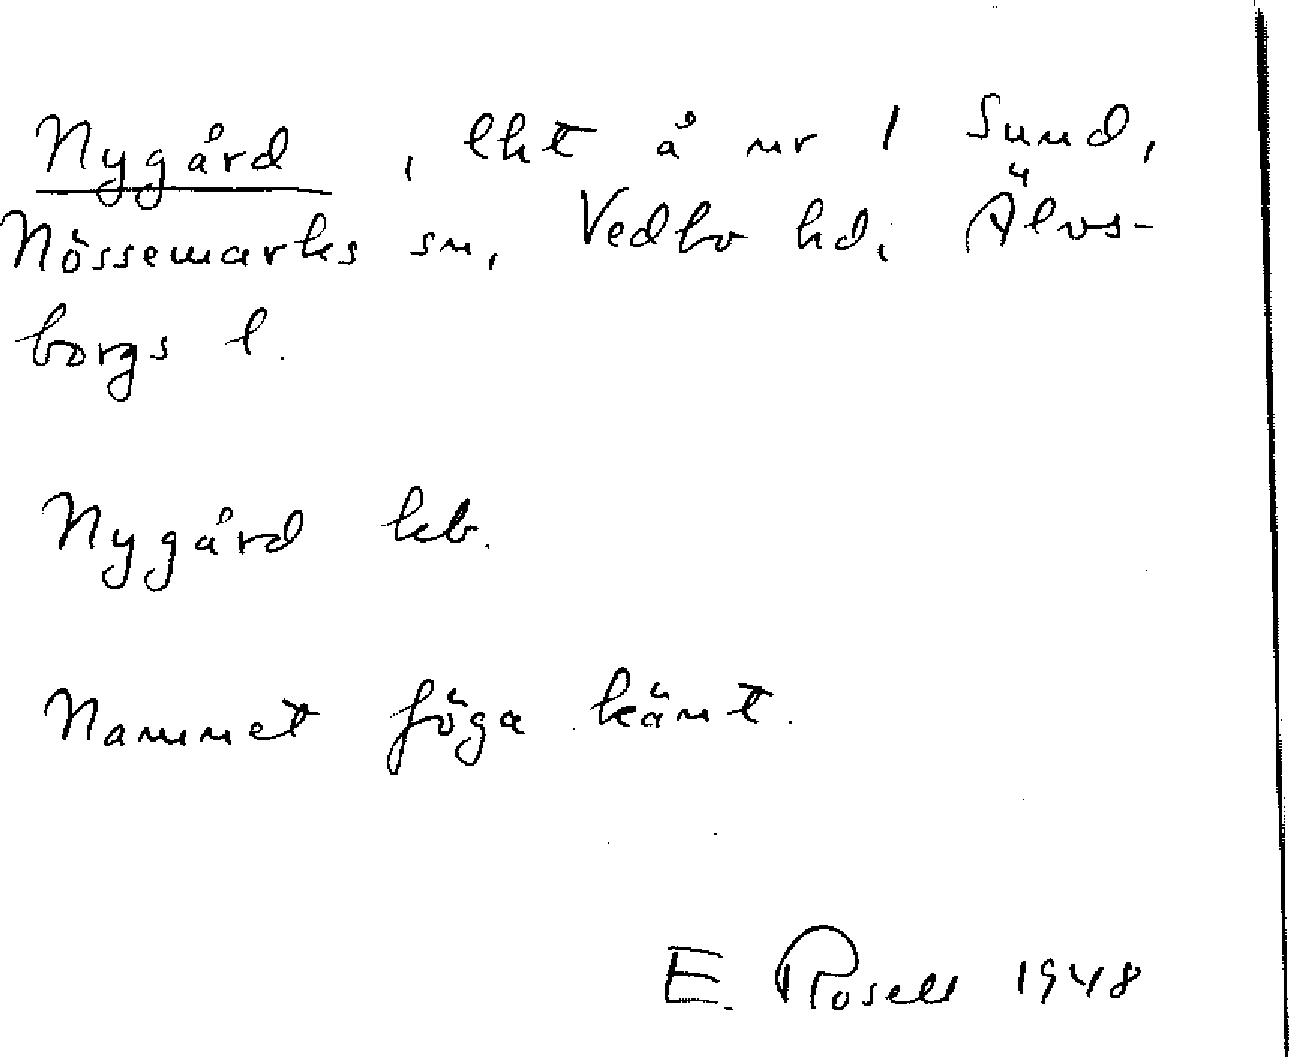 Nygård, lht å nr 1 Sund,
Nössemarks sn, Vedbo hd, Älvs-
borgs l.
Nygård kb.
Namnet föga känt.
E. Rosell 1948